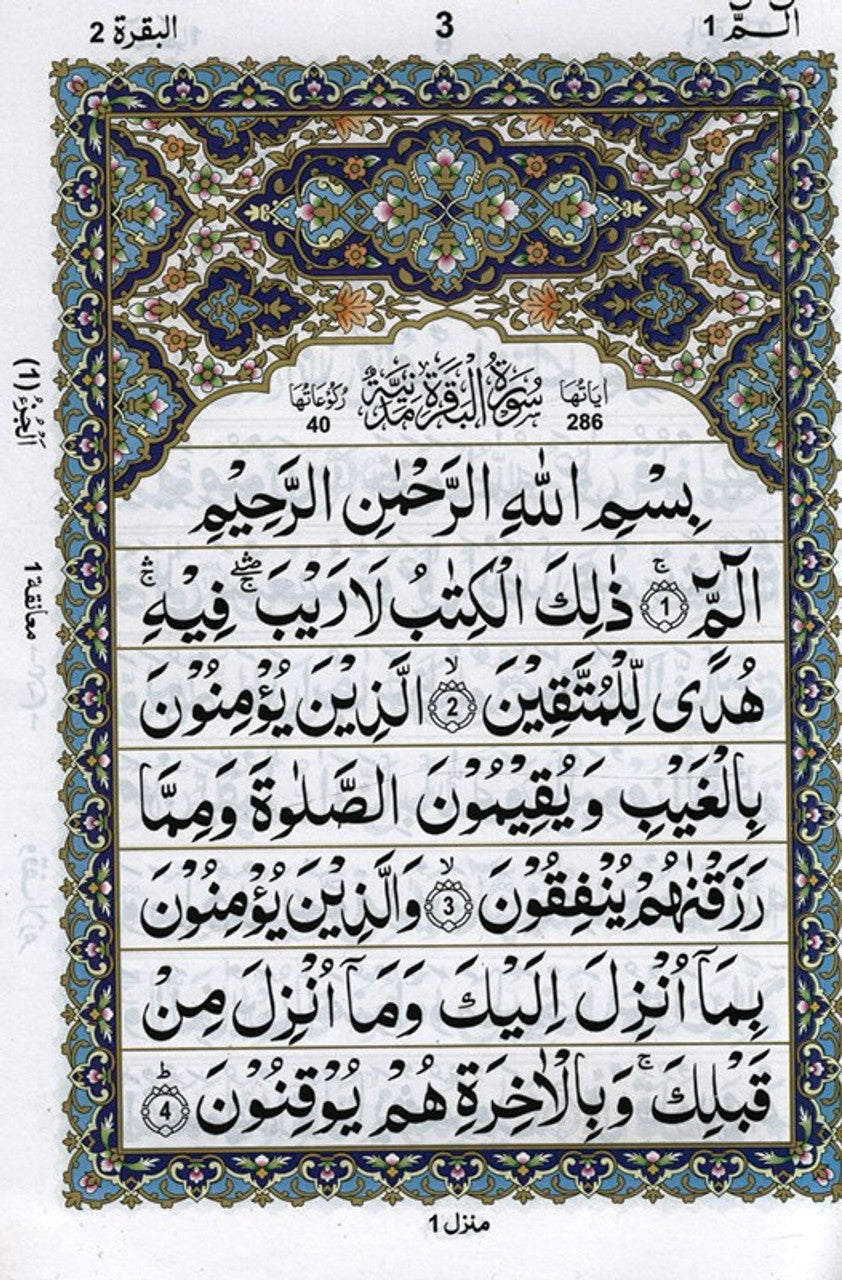 الٓمّٓ 1
3
البقرة 2
اٰیاتُهَا 286
سُوْرَةُ الْبَقَرَةِ مَدَنِیَّةٌ
رُكُوْعَاتُهَا 40
بِسْمِ اللّٰهِ الرَّحْمٰنِ الرَّحِیْمِ
الٓمّٓ ۚ 1 ذٰلِكَ الْكِتٰبُ لَا رَیْبَ ۛۖۚ فِیْهِ ۛۚ
هُدًی لِّلْمُتَّقِیْنَ ۙ 2 الَّذِیْنَ یُؤْمِنُوْنَ
بِالْغَیْبِ وَیُقِیْمُوْنَ الصَّلٰوةَ وَمِمَّا
رَزَقْنٰهُمْ یُنْفِقُوْنَ ۙ 3 وَالَّذِیْنَ یُؤْمِنُوْنَ
بِمَاۤ اُنْزِلَ اِلَیْكَ وَمَاۤ اُنْزِلَ مِنْ
قَبْلِكَ ۚ وَبِالْاٰخِرَةِ هُمْ یُوْقِنُوْنَ ؕ 4
الْجُزْءُ (1)
معانقة 1
منزل 1